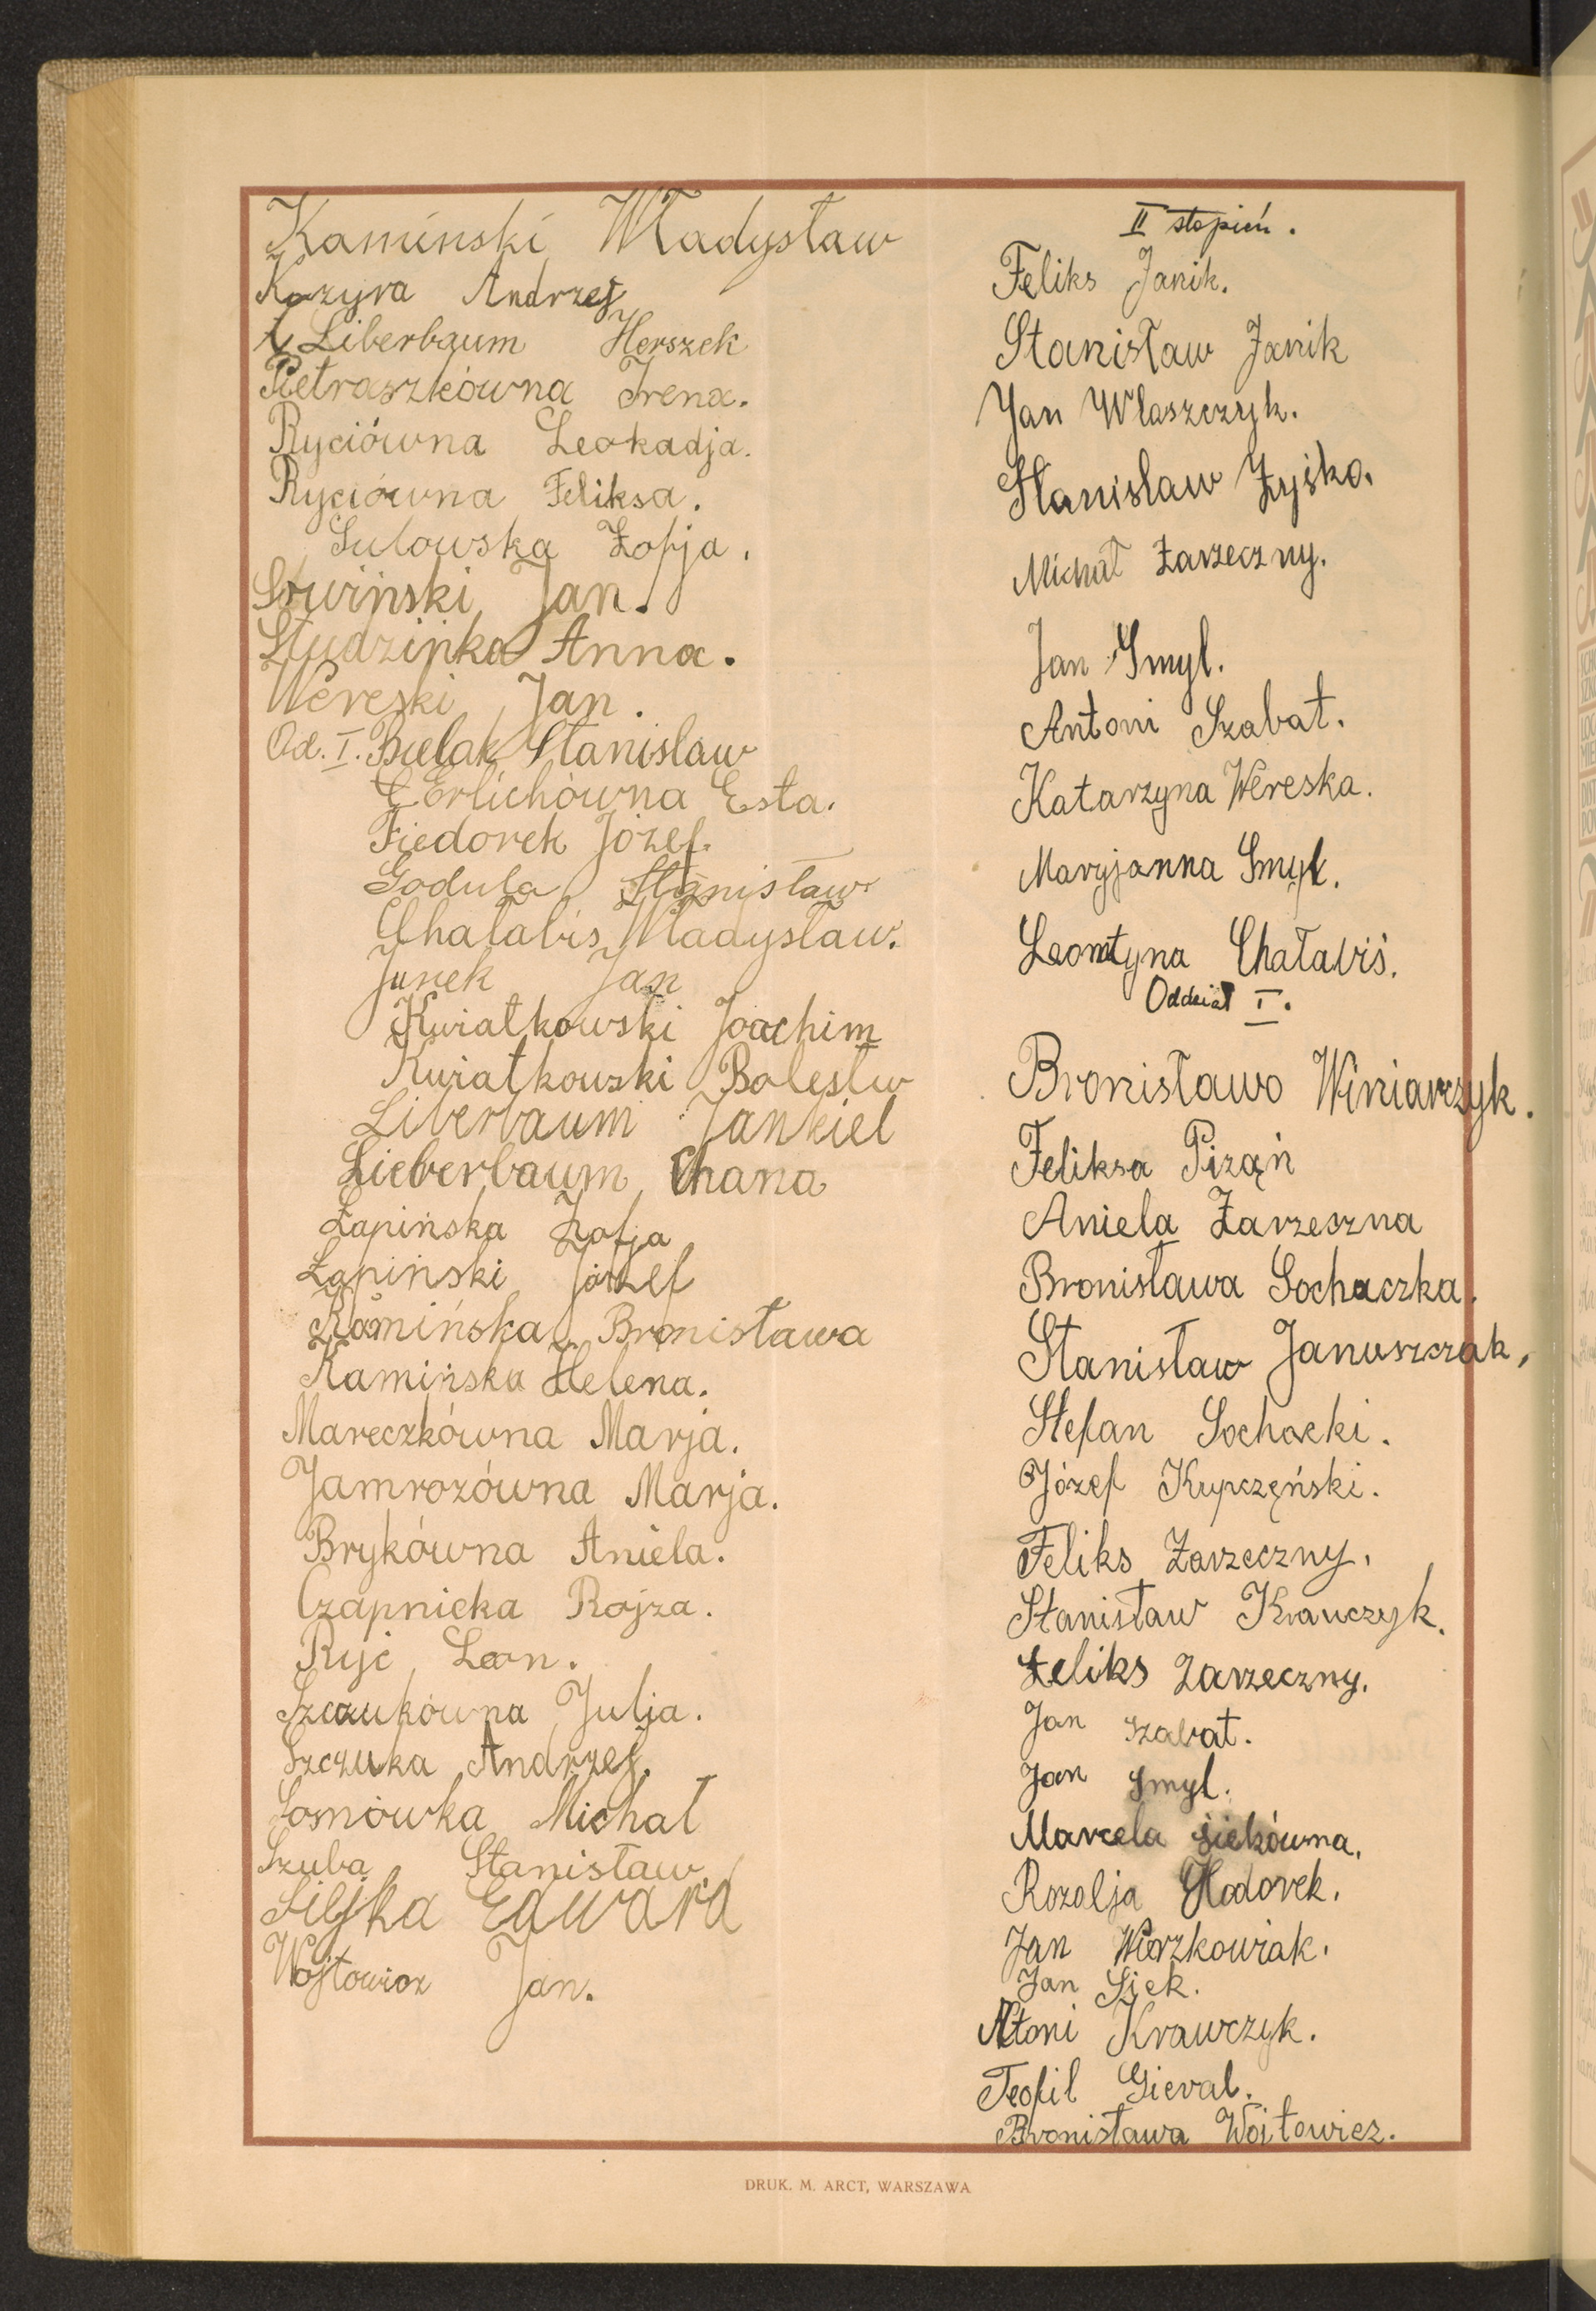 Kaminski Władysław
Kozyra Andrzej
Liberbaum Herszek
Pietraszkówna Irena.
Ryciówna Leokadja.
Ryciówna Feliksa.
Sulowska Zofja.
Słwiński Jan.
Studzińka Anna.
Wereski Jan.
Od. I. Bielak Stanislaw
Erlichówna Esta.
Fiedorek Józef.
Godula Stanisław
Chałabis Władysław.
Junek Jan
Kwiatkowski Joachim
Kwiatkowski Bolesłw
Liberbaum Jankiel
Lieberbaum Chana
Łapińska Zofja
Łapiński Józef
Kamińska Bronisława
Kamińska Helena.
Mareczkówna Marja.
Jamrozówna Marja.
Brykówna Aniela.
Czapnicka Rojza.
Ryć Leon.
Szczukówna Julja.
Szczuka Andrzej.
Somówka Michał
Szuba Stanisław.
Siejka Edward
Wojtowicz Jan.
II stopień.
Feliks Janik.
Stanisław Janik
Jan Wlaszczyk.
Stanislaw Zyśko.
Michał Zarzeczny.
Jan Smyl.
Antoni Szabat.
Katarzyna Wereska.
Maryjanna Smyk.
Leontyna Chałabiś.
Oddział I.
Bronisława Winiarczyk.
Feliksa Piząń
Aniela Zarzeszna
Bronisława Sochaczka.
Stanisław Januszczak,
Stefan Sochacki.
Józef Krupczęński.
Feliks Zarzeczny.
Stanisław Krawczyk.
Feliks Zarzeczny.
Jan Szabat.
Jan Smyl.
Marcela Siekówna.
Rozalja Hodorek.
Jan Wierzkowiak.
Jan Siek.
Atoni Krawczyk.
Teofil Gieral.
Bronisława Woitowicz.
DRUK. M. ARCT, WARSZAWA